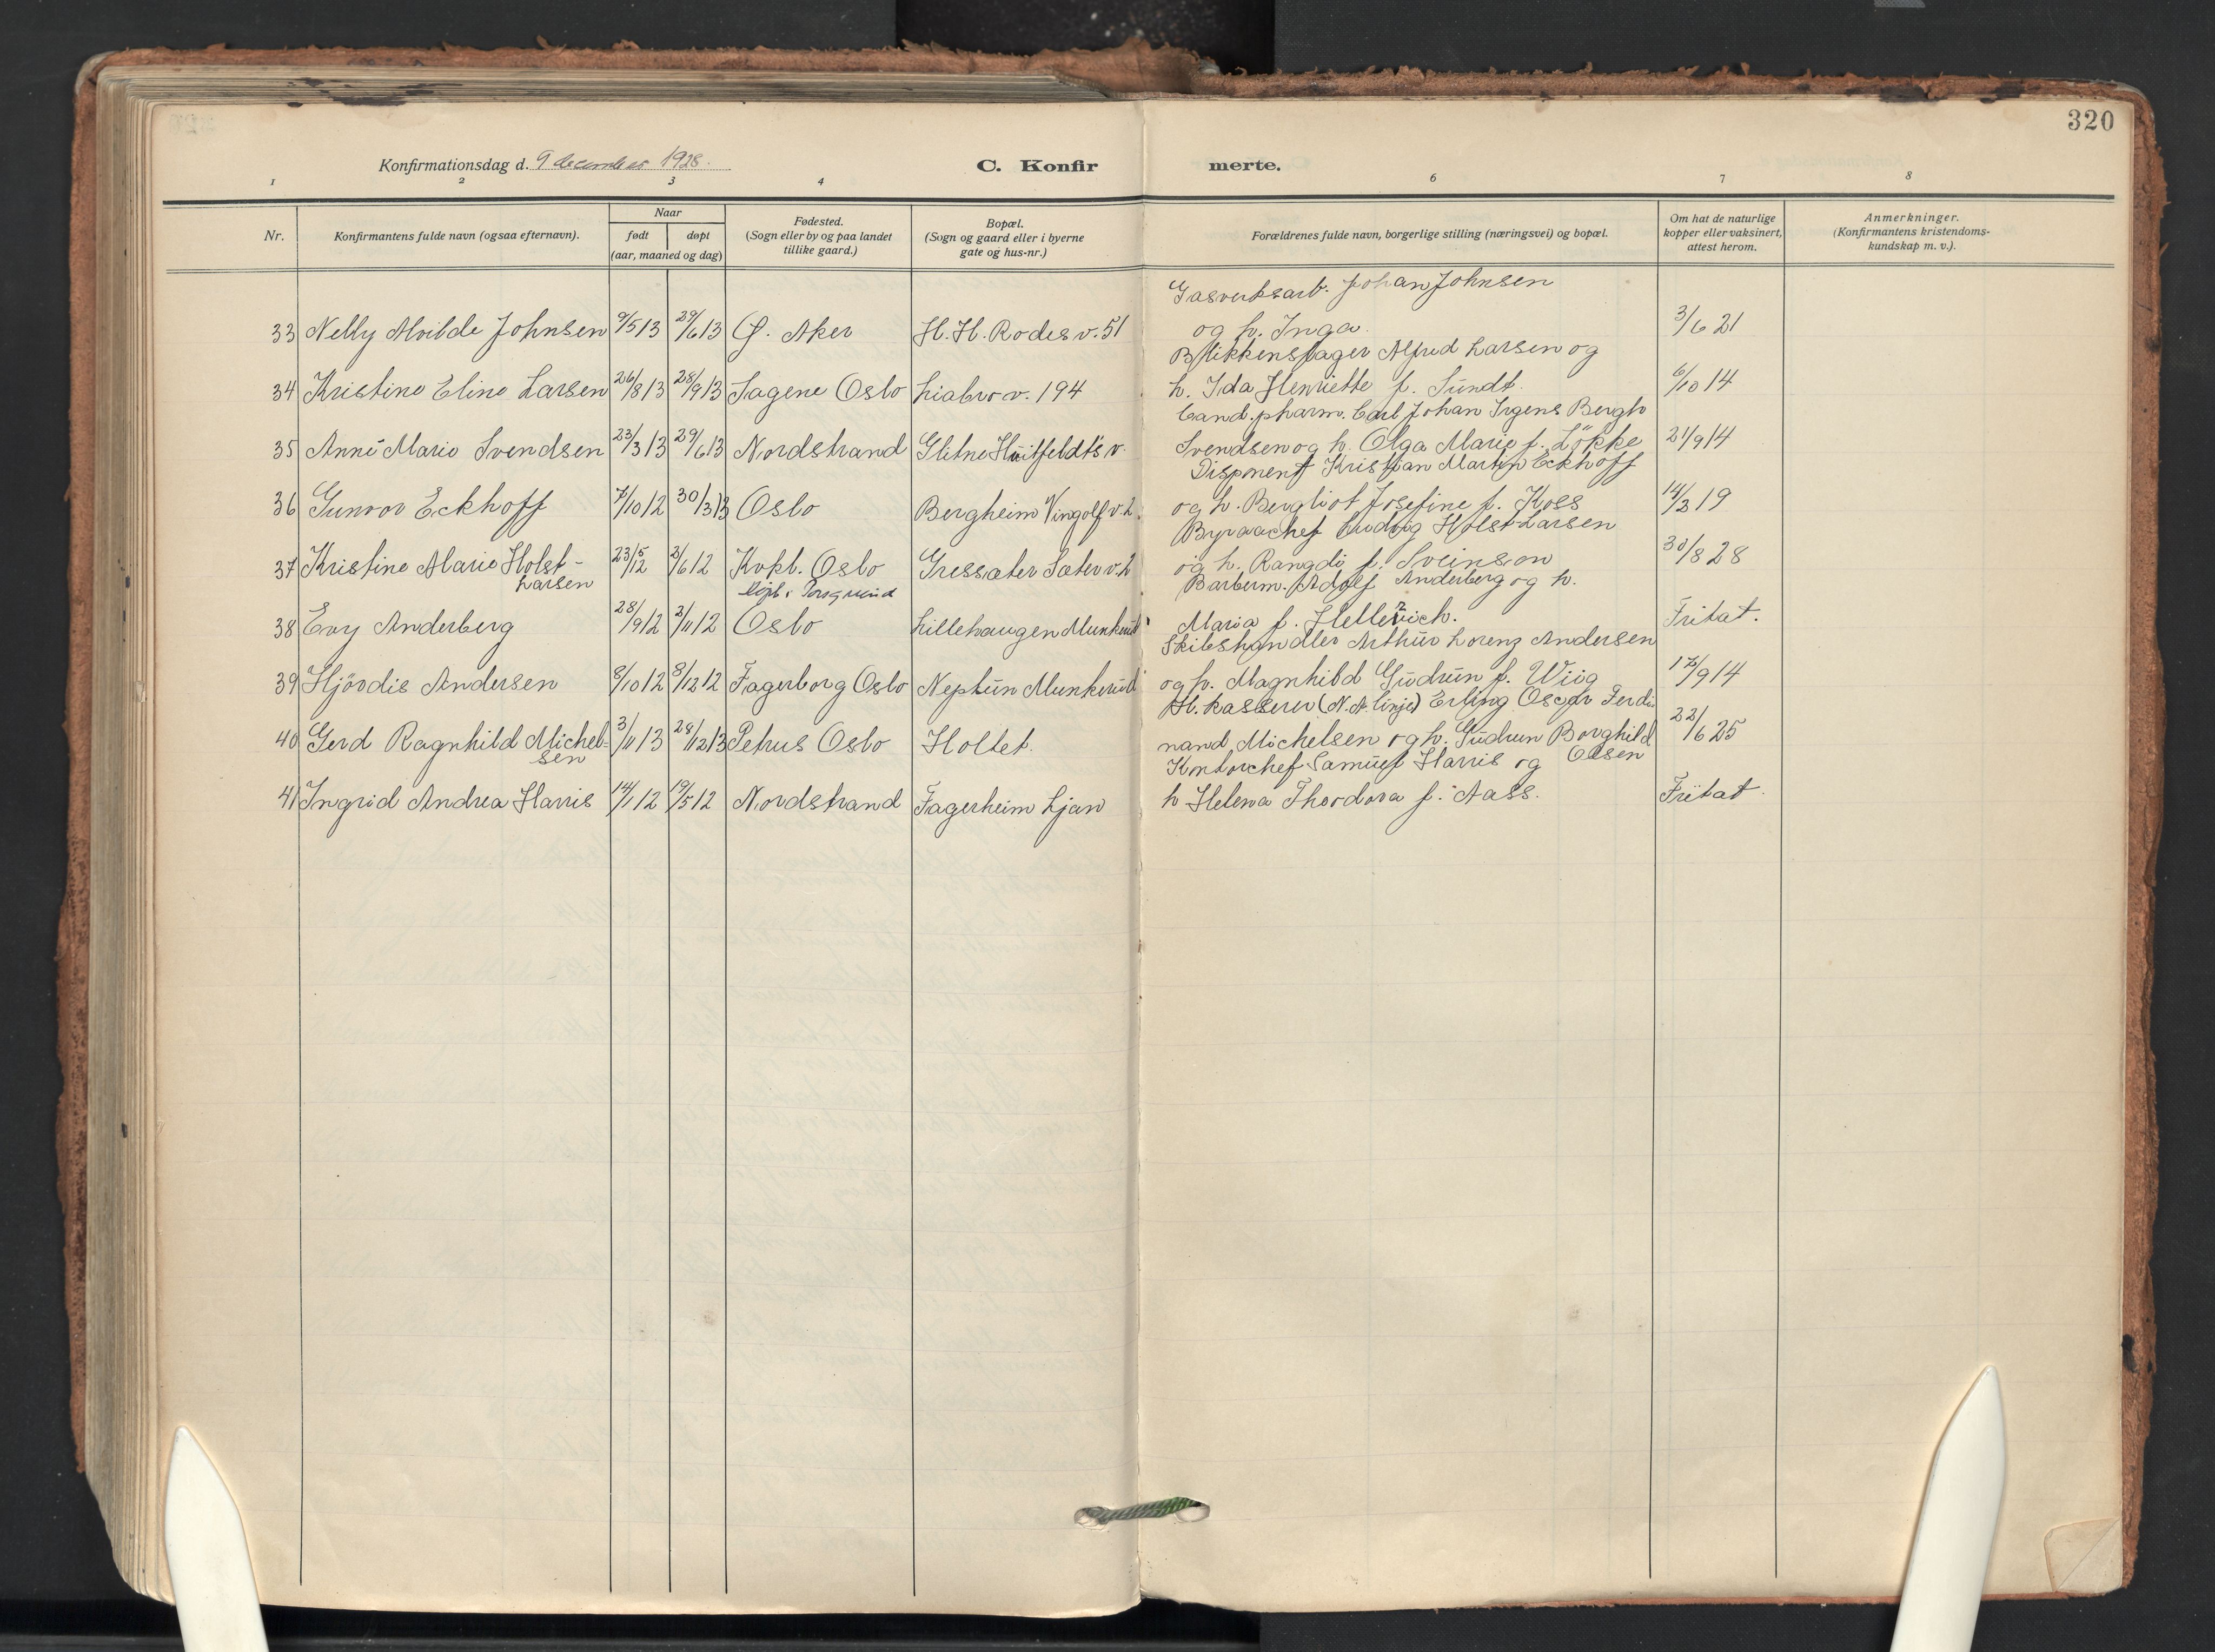 320
Konfirmationsdag d. 9 december 1928.
C. Konfirmerte.
1 2 3 4 6 7 8
Nr.
Konfirmantens fulde navn (ogsaa efternavn).
Naar
født
døpt
(aar, maaned og dag)
Fødested.
(Sogn eller by og paa landet
tillike gaard.)
Bopæl.
(Sogn og gaard eller i byerne
gate og hus-nr.)
Forældrenes fulde navn, borgerlige stilling (næringsvei) og bopæl.
Om hat de naturlige
kopper eller vaksinert,
attest herom.
Anmerkninger.
(Konfirmantens kristendoms-
kundskap m. v.).
Gasverksarb. Johan Johnsen
33 Nelly Alvilde Johnsen 9/5 13 29/6 13 Ø. Aker H. H. Rodes v. 51 og h. Inga. 3/6 21
Blikkenslager Alfred Larsen og
34 Kristine Eline Larsen 26/8 13 28/9 13 Sagene Oslo Liabro v. 194 h. Ida Henriette f. Sundt. 6/10 14
Cand. pharm. Carl Johan Irgens Bergh
35 Anne Marie Svendsen 23/3 13 29/6 13 Nordstrand Glitne Huitfeldt's v. Svendsen og h. Olga Marie f. Lökke 21/9 14
Disponent Kristian Martin Eckhoff
36 Gunvor Eckhoff 7/10 12 30/3 13 Oslo Bergheim Vingolf v. 2. og h. Bergliot Josefine f. Koss 14/3 19
Byraachef Ludvig Holst-Larsen
37 Kristine Marie Holst- 23/5 12 2/6 12 Kvpl. Oslo Gressæter Sæter v. 2 og h. Rangdi f. Sveinson 30/8 28
Larsen
döpt i Porsgrund
Barberm. Adolf Anderberg og h.
38 Evy Anderberg 28/9 12 3/11 12 Oslo Lillehaugen Munkerud Maria f. Hellezich. Fritat.
Skibshandler Arthur Lorenz Andersen
39 Hjördis Andersen 8/10 12 8/12 12 Fagerborg Oslo Neptun Munkerud og h. Magnhild Gudrun f. Wiig 17/9 14
H. kasserer (N. A. linje) Erling Oscar Ferdi
40 Gerd Ragnhild Michel- 3/11 13 28/12 13 Petrus Oslo Holtet. nand Michelsen og h. Gudrun Borghild 22/6 25
sen
Olsen
Kontorchef Samuel Harris og
41 Ingrid Andrea Harris 14/1 12 19/5 12 Nordstrand Fagerheim Ljan h Helena Thordora f. Aass. Fritat.